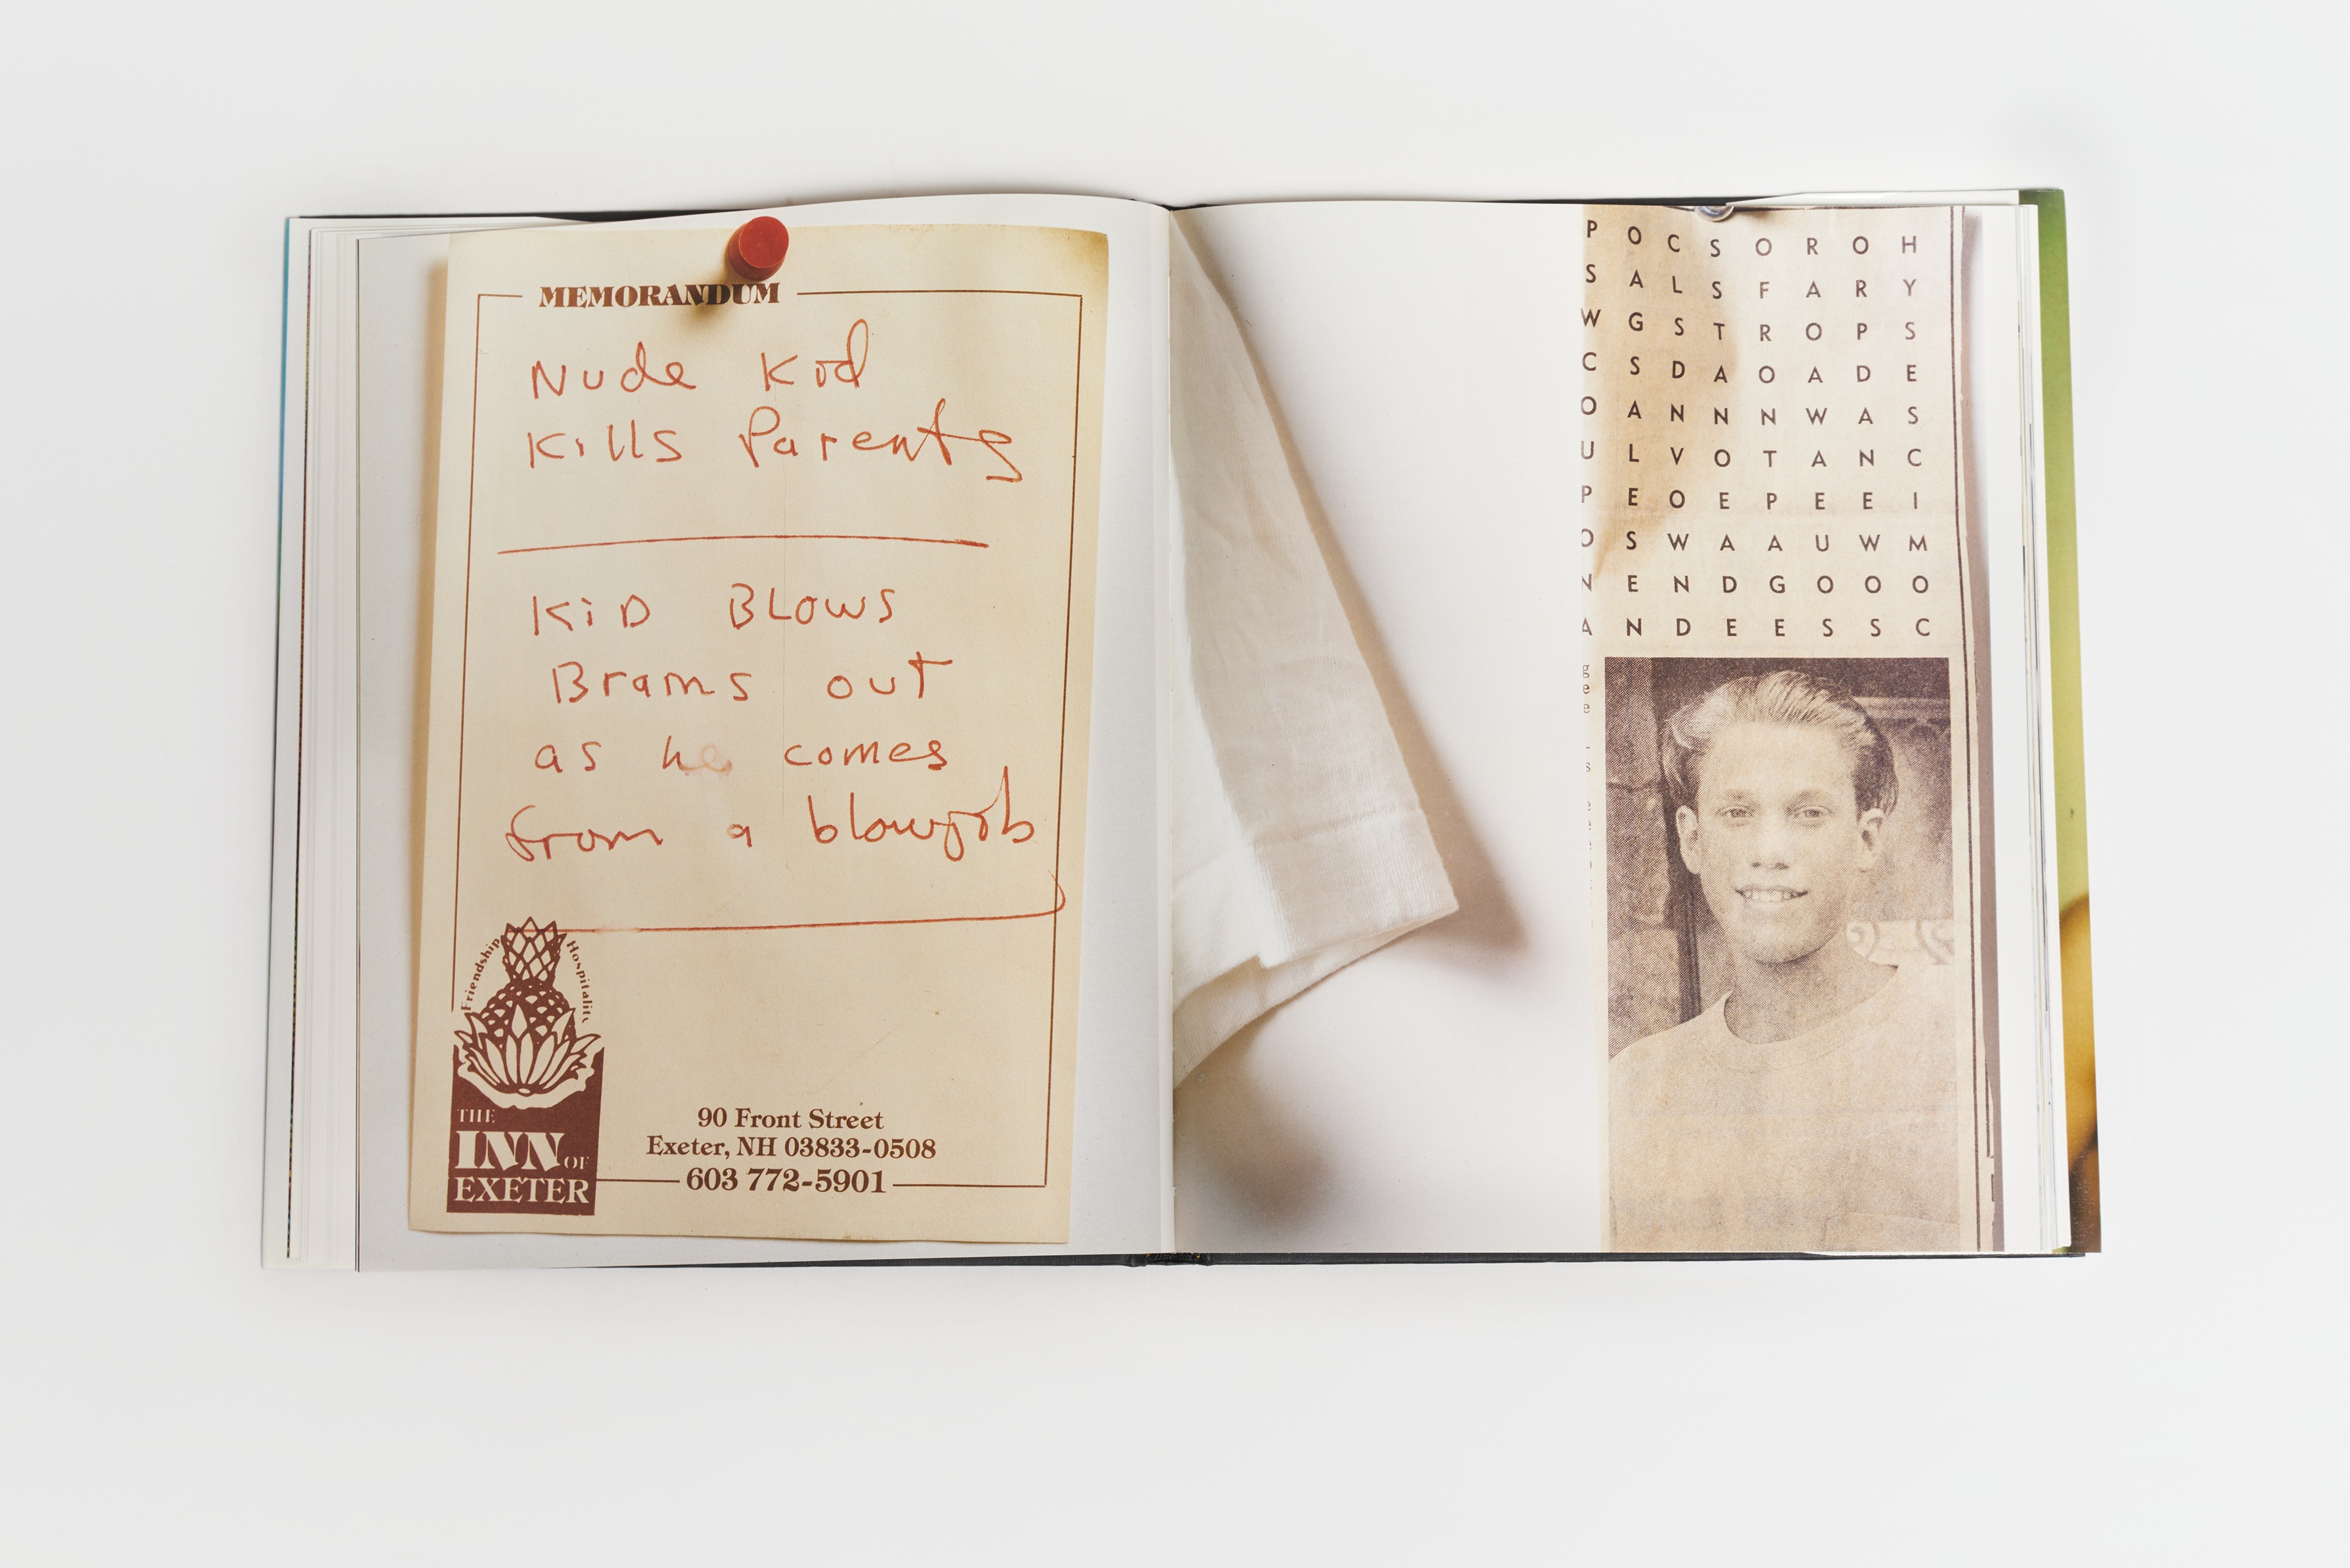 MEMORANDUM
Nude Kid
Kills Parents
KiD BLOWS
Brains out
as he comes
from a blowjob
Friendship Hospitality
THE
INN OF
EXETER
90 Front Street
Exeter, NH 03833-0508
603 772-5901
P O C S O R O H
S A L S F A R Y
W G S T R O P S
C S D A O A D E
O A N N N W A S
U L V O T A N C
P E O E P E E I
O S W A A U W M
N E N D G O O O
A N D E E S S C